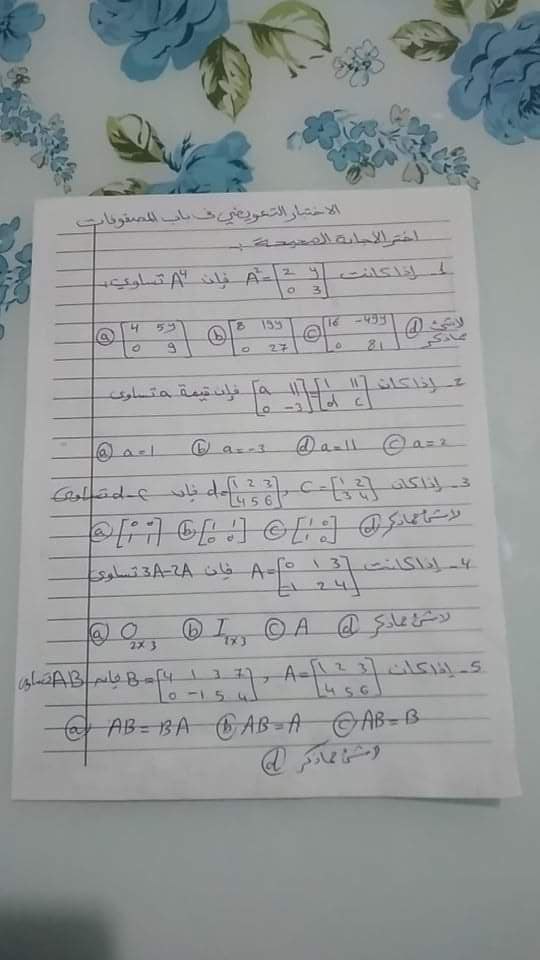 الاختبار التعويضي في باب المصفوفات
اختر الاجابة الصحيحة :
1- إذا كانت A² = [2 y; 0 3] فإن A⁴ تساوي:
ⓐ [4 5y; 0 9] ⓑ [8 19y; 0 27] ⓒ [16 -49y; 0 81] ⓓ لاشئ مماذكر
2- إذا كان [a 11; 0 -3] = [1 11; d c] فإن قيمة a تساوى
ⓐ a=1 ⓑ a=-3 ⓓ a=11 ⓒ a=2
3- إذا كان C = [1 2; 3 4] , d = [1 2 3; 4 5 6] فإن d-c تساوى
ⓐ [0 0; 1 1] ⓑ [1 1; 0 0] ⓒ [1 0; 1 0] ⓓ لاشئ مماذكر
4- إذا كانت A = [0 1 3; -1 2 4] فإن 3A-2A تساوى
ⓐ O₂ₓ₃ ⓑ I₂ₓ₃ ⓒ A ⓓ لاشئ مماذكر
5- إذا كان A = [1 2 3; 4 5 6] , B = [4 1 3 7; 0 -1 5 4] فإن AB تساوى
ⓐ AB = BA ⓑ AB = A ⓒ AB = B
ⓓ لاشئ مماذكر